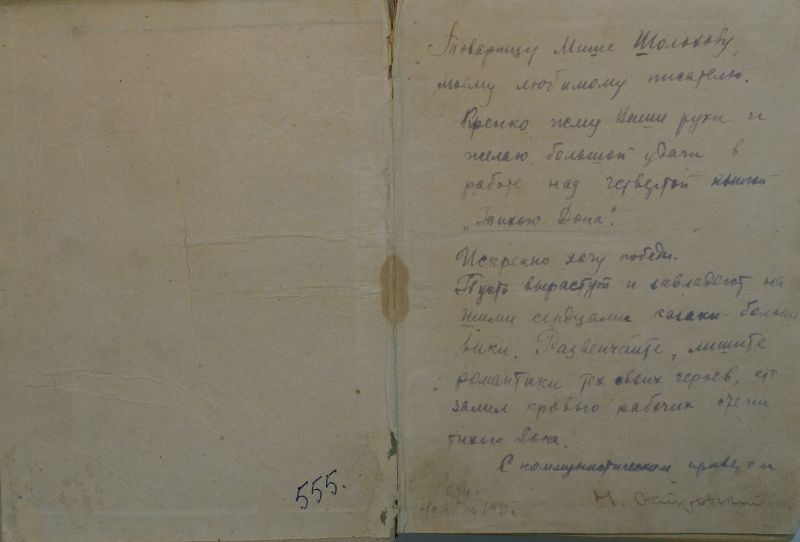 555.
Товарищу Мише Шолохову,
моему любимому писателю.
Крепко жму Ваши руки и
желаю большой удачи в
работе над четвертой книгой
„Тихого Дона".
Искренно хочу победы.
Пусть вырастут и завладеют на
шими сердцами казаки-больше
вики. Развенчайте, лишите
романтики тех своих героев, кто
залил кровью рабочих степи
тихого Дона.
С коммунистическим приветом
Н. Островский
Сочи.